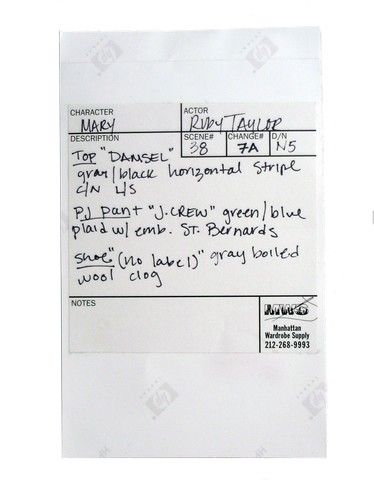 CHARACTER
MARY
ACTOR
RUBY TAYLOR
DESCRIPTION
SCENE#
38
CHANGE#
7A
D/N
N5
TOP "DAMSEL"
gray/black horizontal stripe
C/N L/S
PJ pant "J.CREW" green/blue
plaid w/ emb. ST. Bernards
Shoe "(no label)" gray boiled
wool clog
NOTES
MWS
Manhattan
Wardrobe Supply
212-268-9993